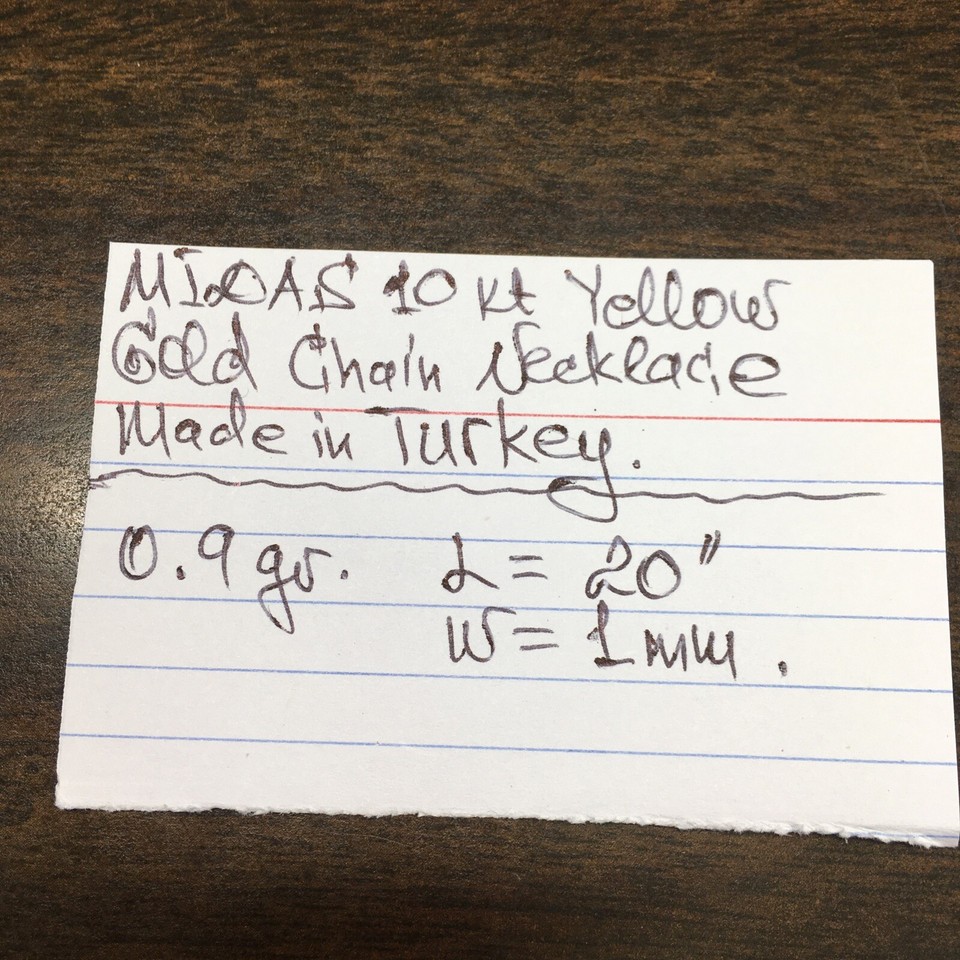 MIDAS 10 kt Yellow
Gold Chain Necklace
Made in Turkey.
0.9 gr. L = 20"
W = 1 mm.